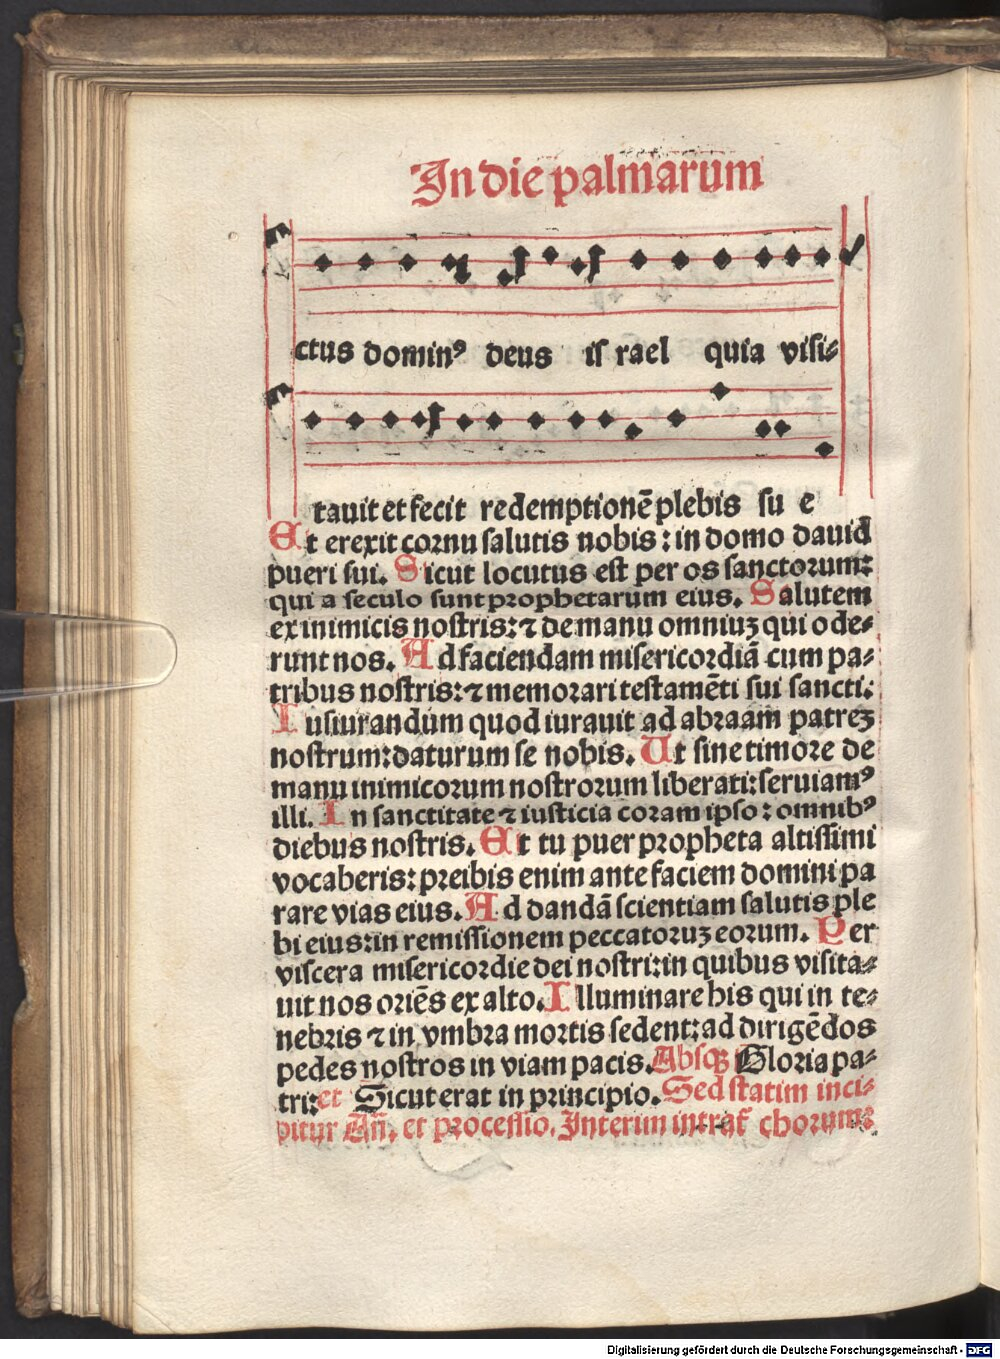 In die palmarum
ctus dominꝰ deus is rael quia visi⸗
tauit et fecit redemptionē plebis su e
Et erexit cornu salutis nobis: in domo dauid
pueri sui. Sicut locutus est per os sanctorum:
qui a seculo sunt prophetarum eius. Salutem
ex inimicis nostris: ⁊ de manu omniuʒ qui ode⸗
runt nos. Ad faciendam misericordiā cum pa⸗
tribus nostris: ⁊ memorari testamēti sui sancti.
Iusiurandum quod iurauit ad abraam patreʒ
nostrum: daturum se nobis. Ut sine timore de
manu inimicorum nostrorum liberati: seruiamꝰ
illi. In sanctitate ⁊ iusticia coram ipso: omnibꝰ
diebus nostris. Et tu puer propheta altissimi
vocaberis: preibis enim ante faciem domini pa
rare vias eius. Ad dandā scientiam salutis ple
bi eius: in remissionem peccatoruʒ eorum. Per
viscera misericordie dei nostri: in quibus visita⸗
uit nos oriēs ex alto. Illuminare his qui in te⸗
nebris ⁊ in vmbra mortis sedent: ad dirigēdos
pedes nostros in viam pacis. Absqʒ Gloria pa⸗
tri: et Sicut erat in principio. Sed statim inci⸗
pitur Añ. et processio. Interim intrat̄ chorum:
Digitalisierung gefördert durch die Deutsche Forschungsgemeinschaft - DFG